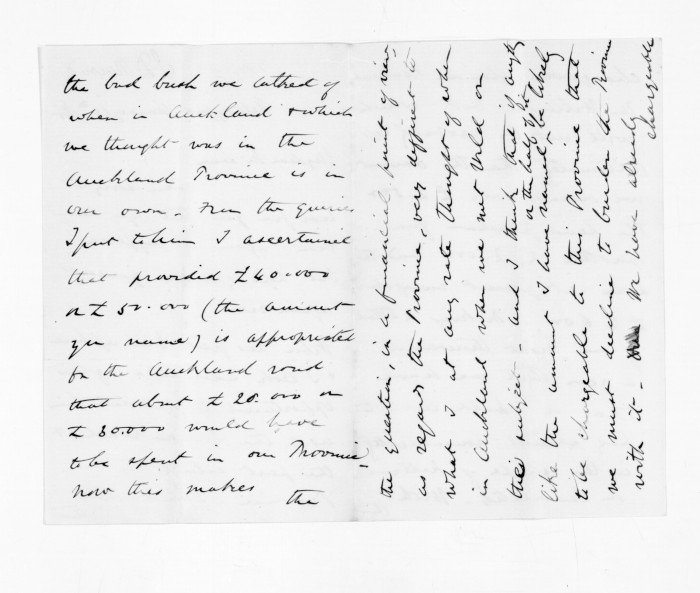 the bad bush we talked of
when in Auckland & which
we thought was in the
Auckland Province is in
our own - From the queries
I put to him I ascertained
that provided £40.000
or £50.000 (the amount
you name) is appropriated
for the Auckland road
that about £20.000 or
£30.000 would have
to be spent in our Province -
now this makes
the
the question, in a financial point of view,
as regards the Province, very different to
what I at any rate thought of when
in Auckland when we met Weld on
the subject - and I think that if anything
like the amount I have named, or the half of it, be likely
to be chargeable to this Province that
we must decline to burden the Province
with it - We have already
chargeable